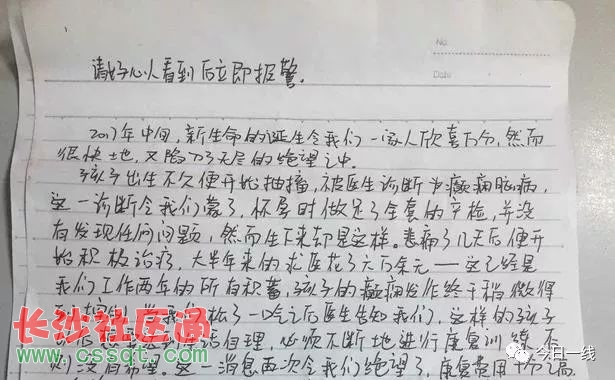 No.
Date
请好心人看到后立即报警.
2017年中间,新生命的诞生令我们一家人欣喜万分,然而
很快地,又陷了无尽的绝望之中.
孩子出生不久便开始抽搐,被医生诊断为癫痫脑病,
这一诊断令我们蒙了,怀孕时做足了全套的产检,并没
有发现任何问题,然而生下来却是这样。悲痛了几天后便开
始积极治疗,大半年来的求医花了六万余元——这已经是
我们工作两年的所有积蓄,孩子的癫痫发作终于稍微得
了一 之后医生告知我们,这样的孩子
自理,必须不断地进行康复训练,否
则没有希望。这一消息再次令我们绝望了,康复费用十分高
长沙社区通
www.cssqt.com
今日一线